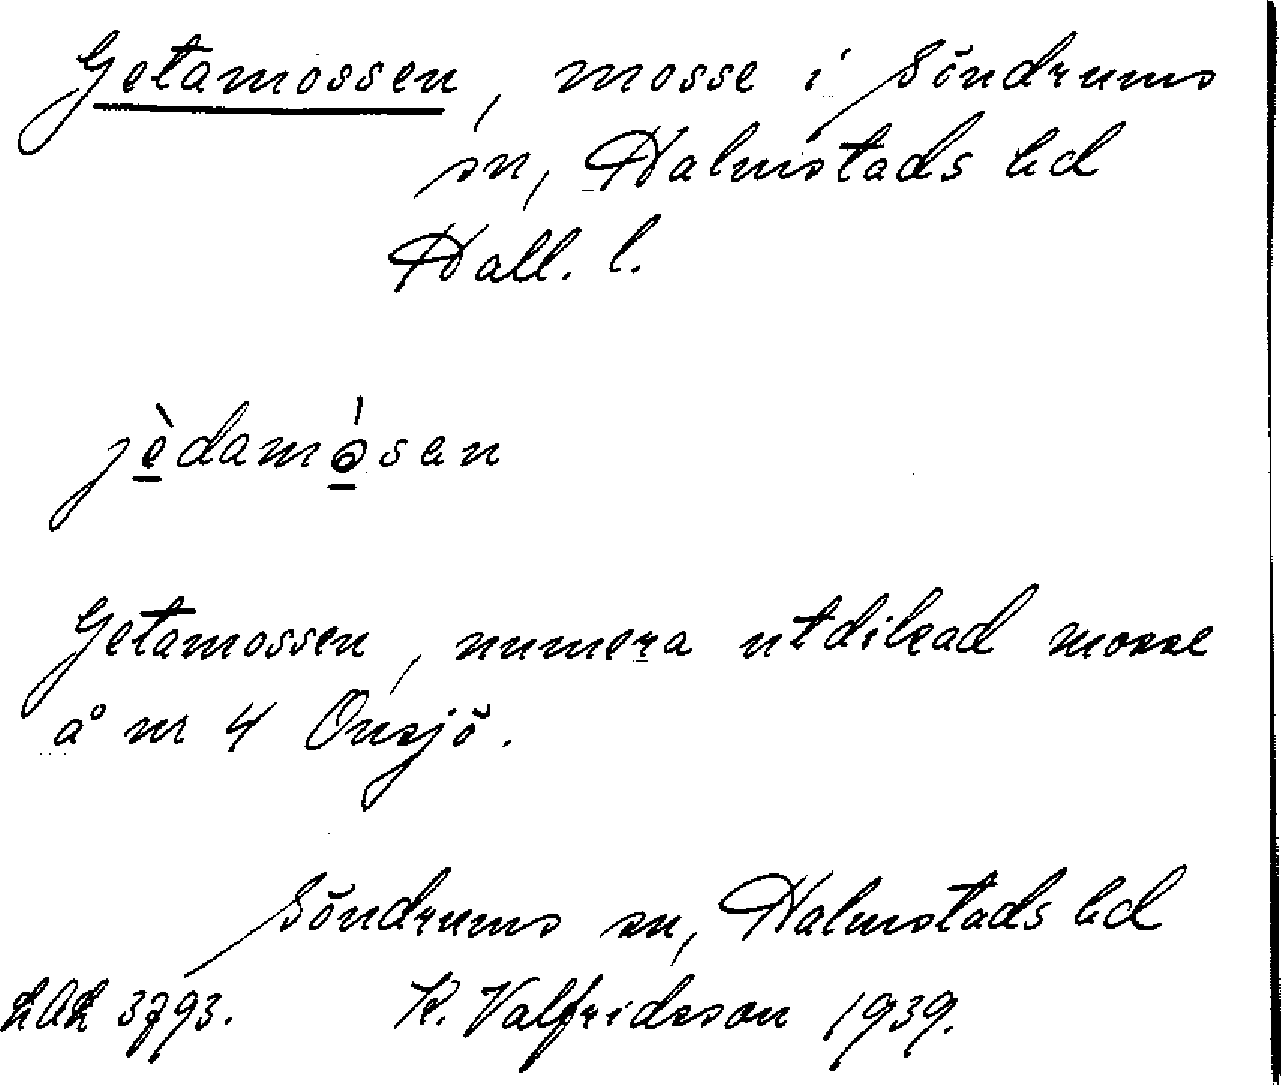 Getamossen, mosse i Söndrums
sn, Halmstads hd
Hall. l.
jèdamósan
Getamossen, numera utdikad mosse
å nr 4 Onsjö.
Söndrums sn, Halmstads hd
LAL 3793. K. Valfridsson 1939.